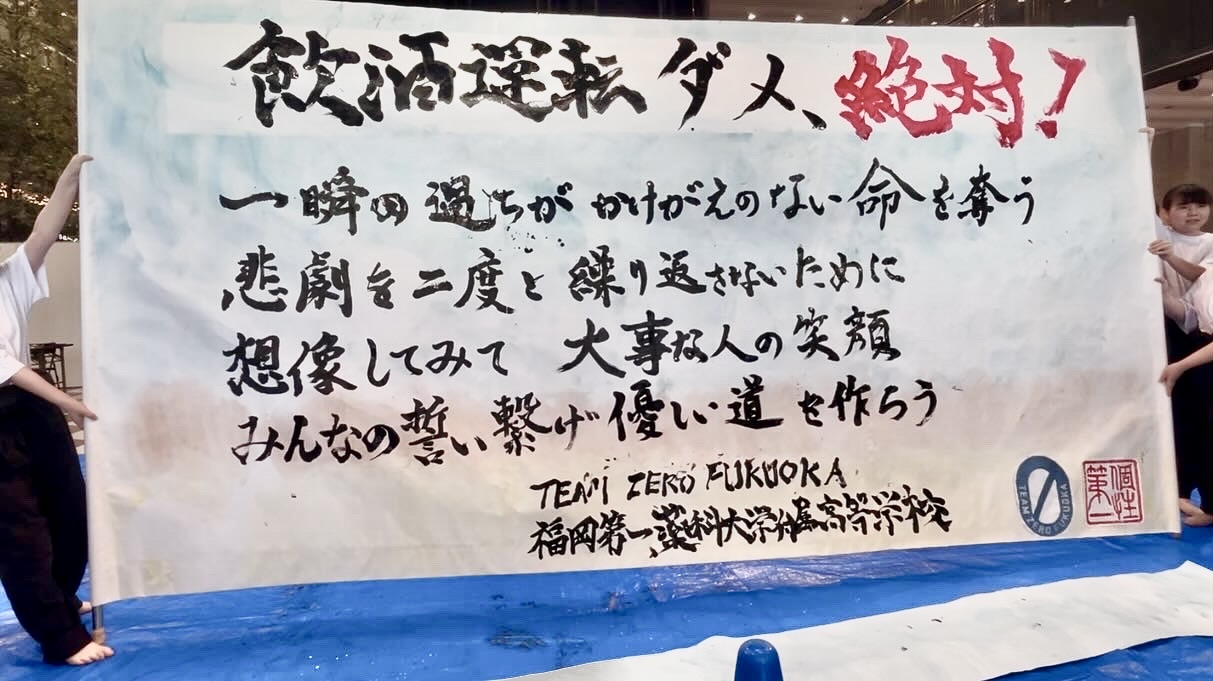 飲酒運転ダメ、絶対!
一瞬の過ちがかけがえのない命を奪う
悲劇を二度と繰り返さないために
想像してみて 大事な人の笑顔
みんなの誓い繋げ優しい道を作ろう
TEAM ZERO FUKUOKA
福岡第一、薬科大学付属高等学校
TEAM ZERO FUKUOKA
個性
第一